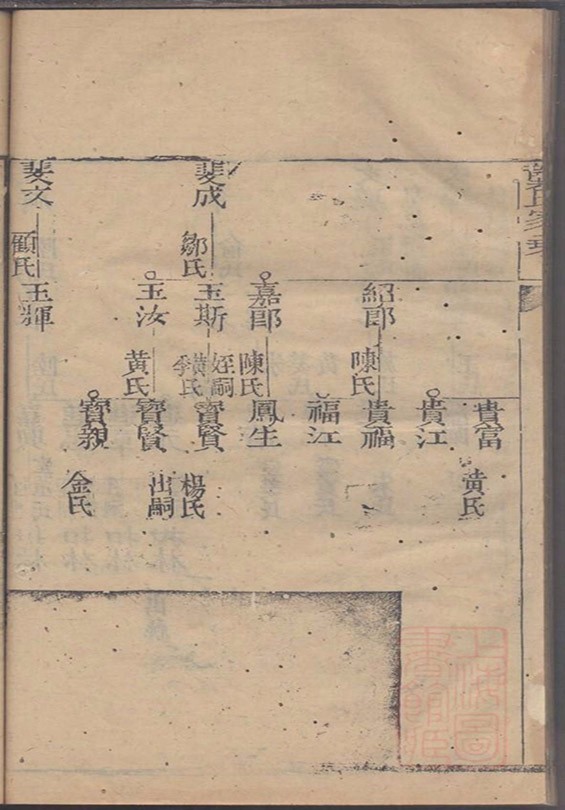 貴富
黃氏
貴江
紹郎
陳氏
貴福
福江
嘉郎
陳氏
鳳生
斐成
鄒氏
玉斯
姪嗣
黃氏
李氏
寶賢
楊氏
玉汝
黃氏
寶賢
出嗣
寶親
金氏
斐文
顧氏
玉輝